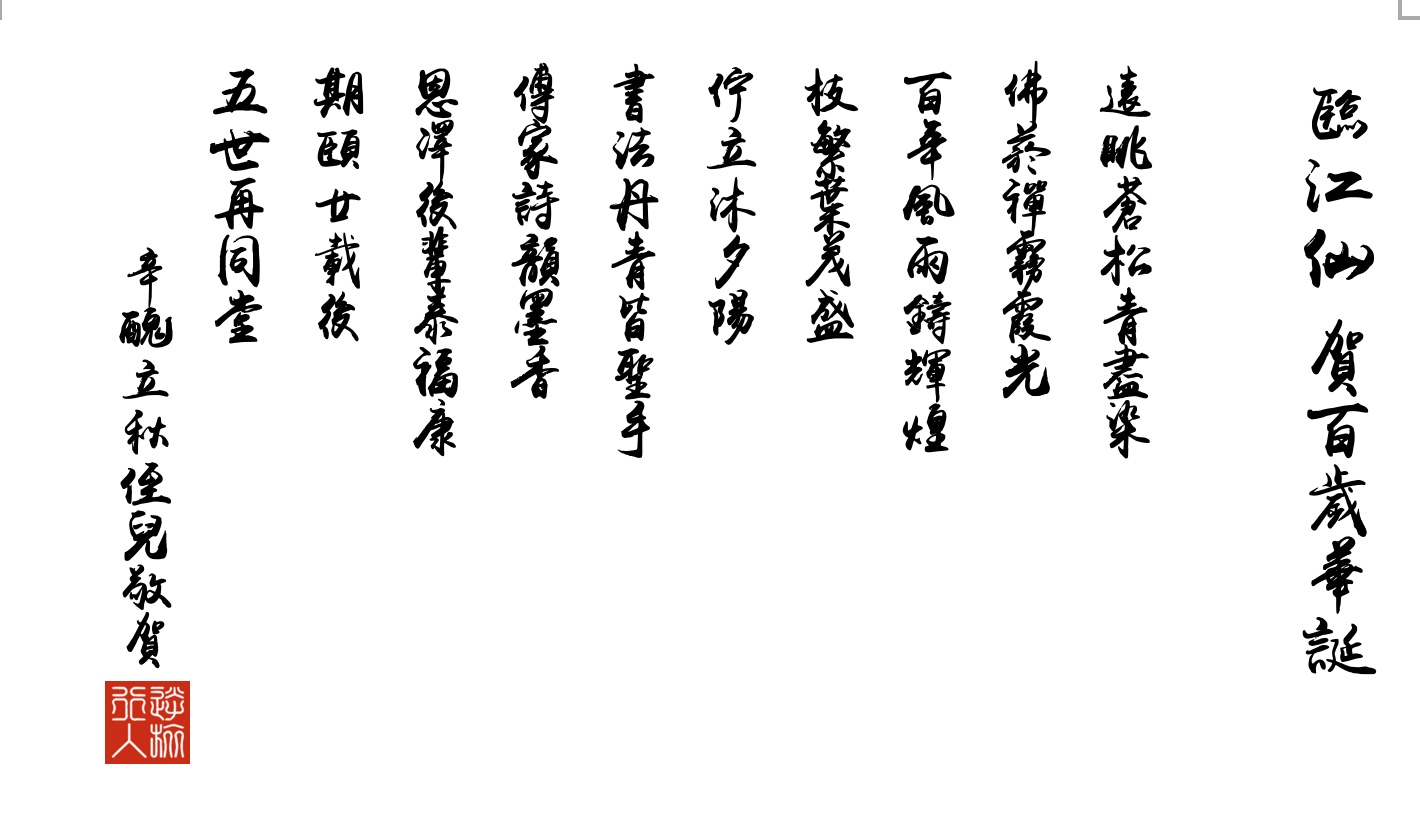 臨江仙 賀百歲華誕
遠眺蒼松青盡染
佛菸禪霧霞光
百年風雨鑄輝煌
枝繁葉茂盛
佇立沐夕陽
書法丹青皆聖手
傳家詩韻墨香
恩澤後輩泰福康
期頤廿載後
五世再同堂
辛醜立秋侄兒敬賀